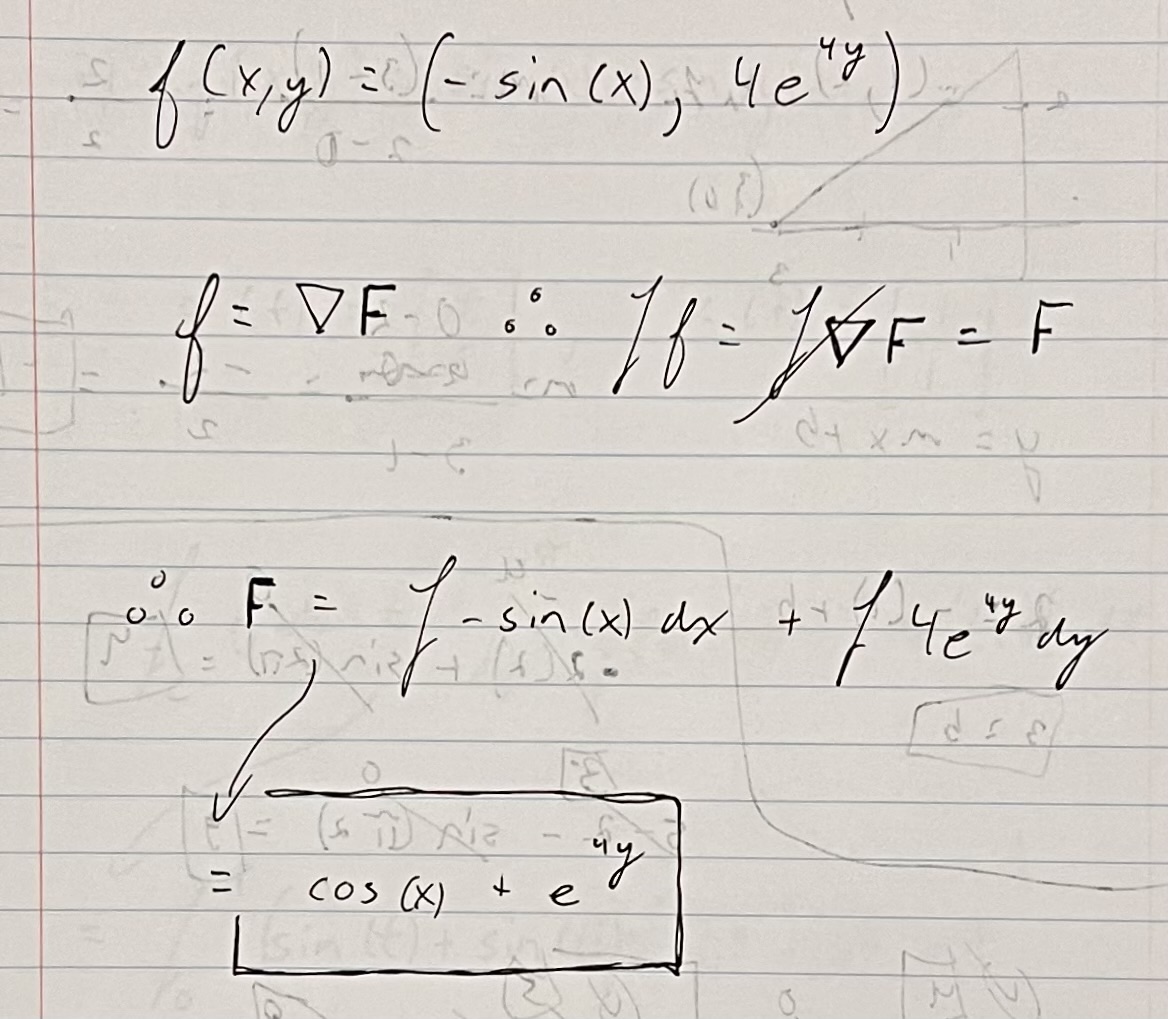 f(x,y) = (- sin(x), 4e^{4y})
f = ∇F ∴ ∫f = ∫∇F = F
∴ F = ∫ - sin(x) dx + ∫ 4e^{4y} dy
= cos(x) + e^{4y}